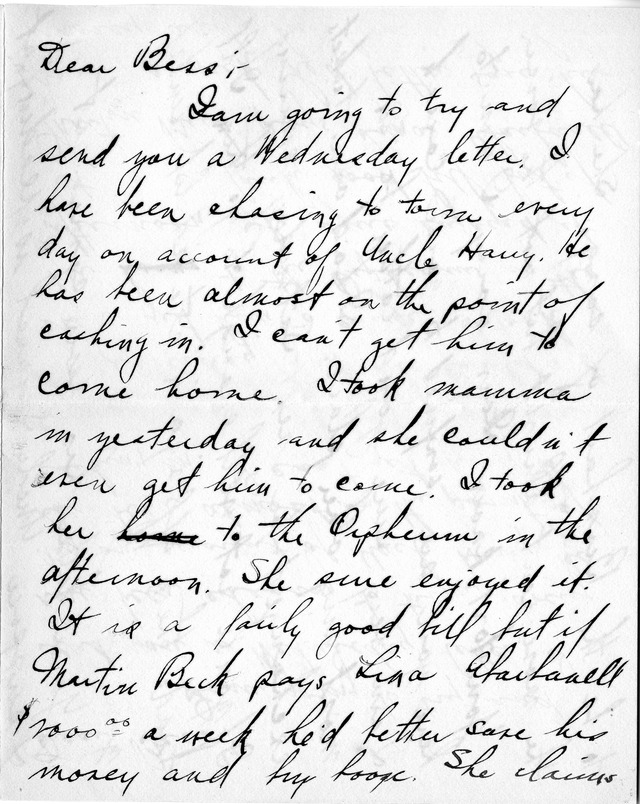 Dear Bess;-
I am going to try and
send you a Wednesday letter. I
have been chasing to town every
day on account of Uncle Harry. He
has been almost on the point of
cashing in. I can't get him to
come home. I took mamma
in yesterday and she couldn't
even get him to come. I took
her home to the Orpheum in the
afternoon. She sure enjoyed it.
It is a fairly good bill but if
Martin Beck pays Lina Abarbanell
$1000 00 a week he'd better save his
money and buy booze. She claims